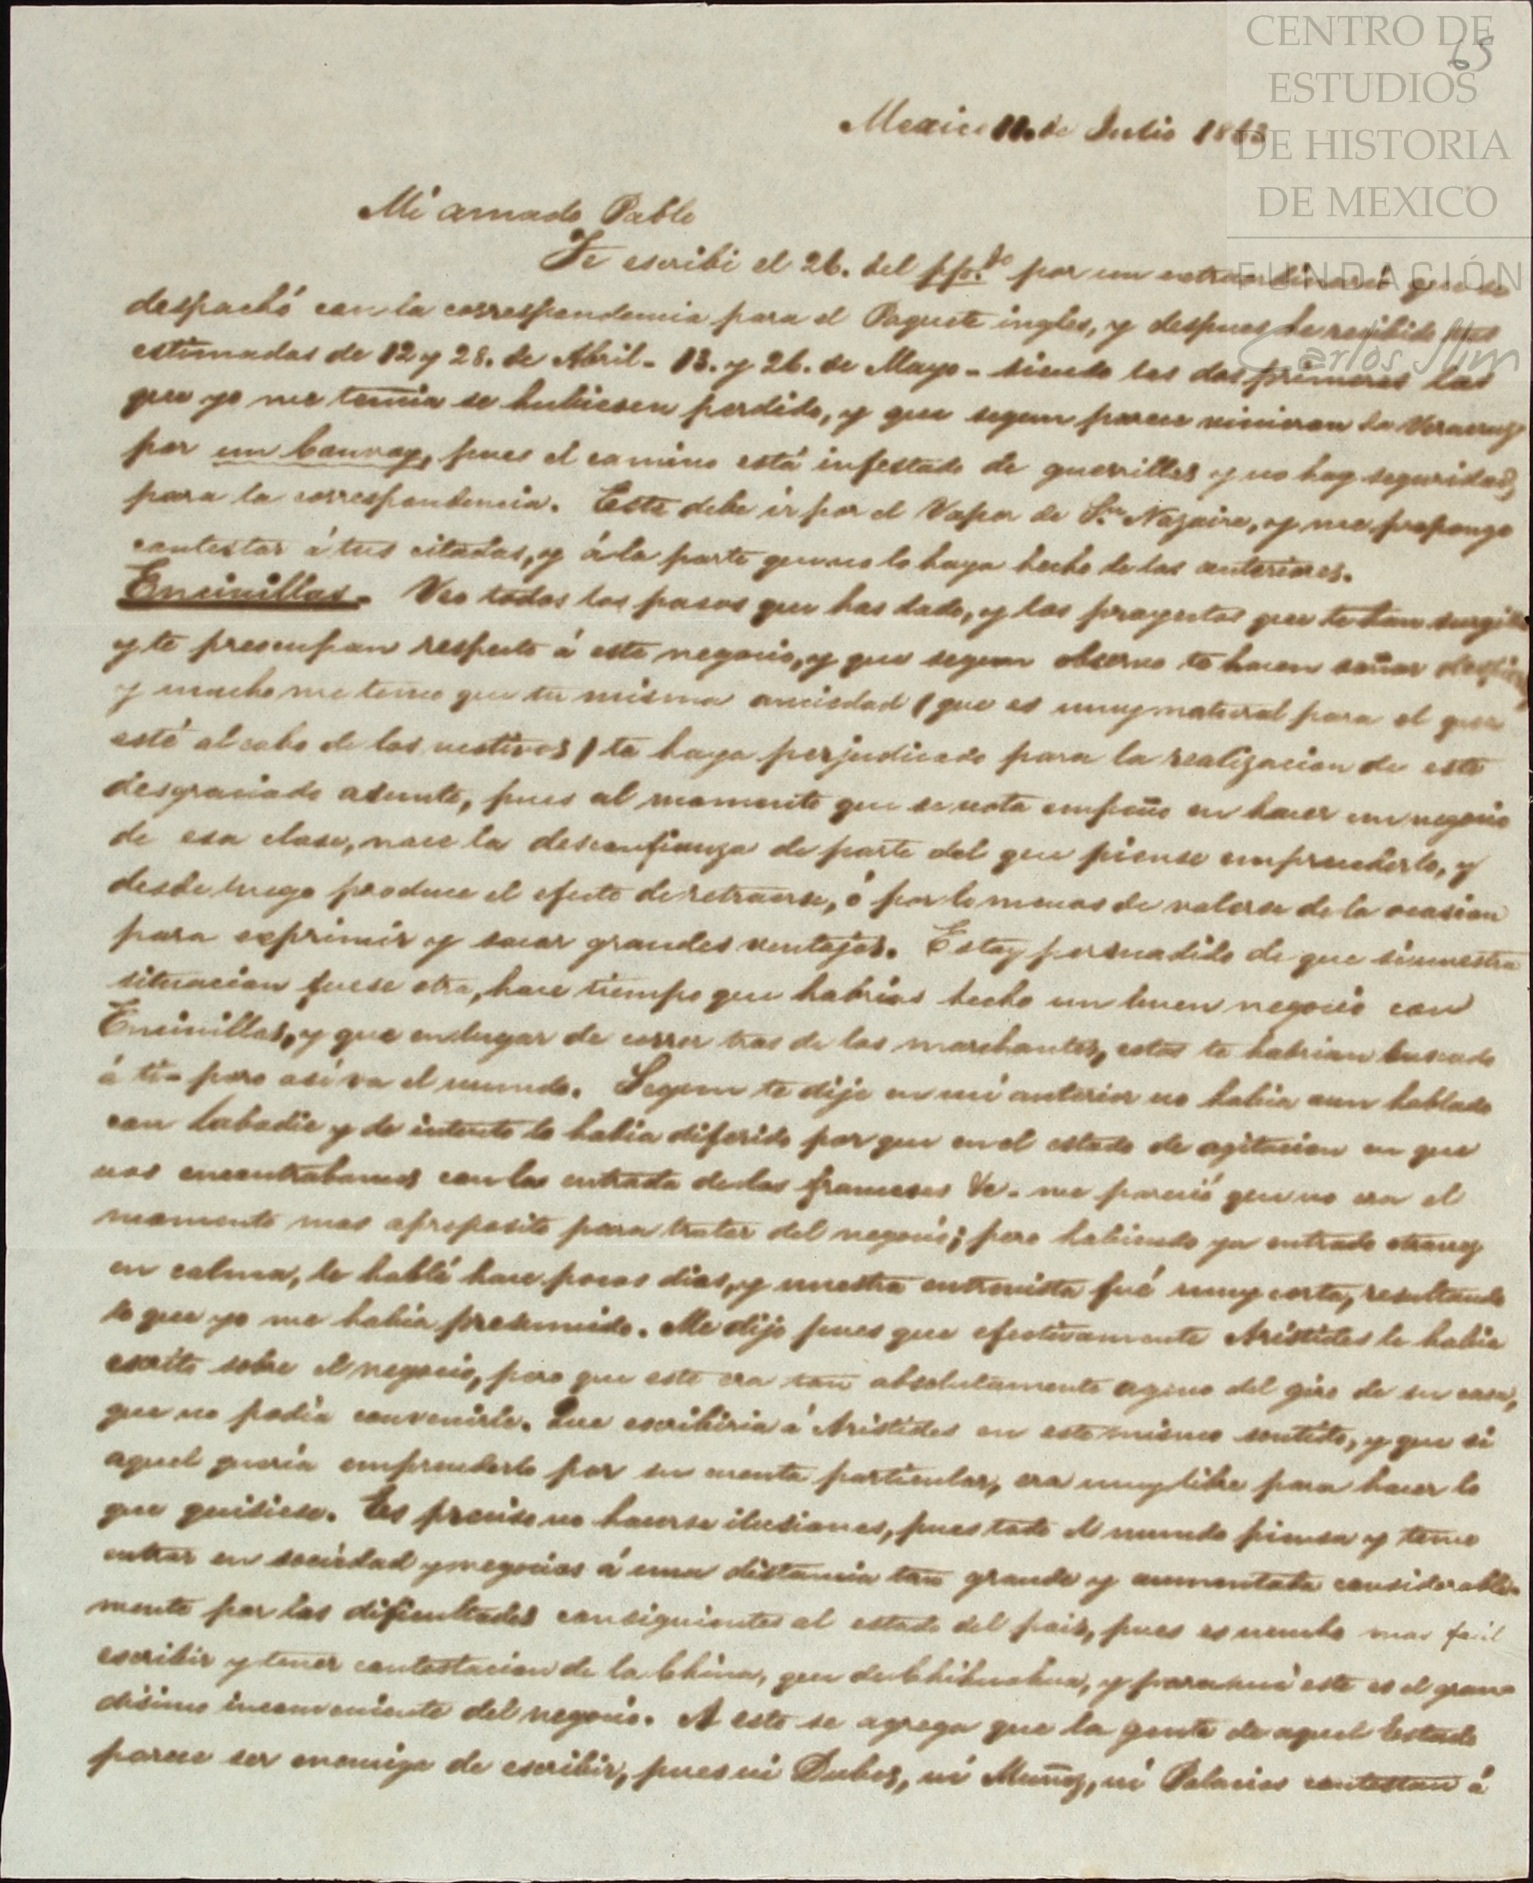 CENTRO DE
ESTUDIOS
DE HISTORIA
DE MEXICO
FUNDACIÓN
Carlos Slim
65
Mexico 11. de Julio 1863
Mi amado Pablo
Te escribi el 26. del ppdo. por un extraordinario que se
despachó con la correspondencia para el Paquete ingles, y despues he recibido tus
estimadas de 12 y 28. de Abril - 13. y 26. de Mayo - siendo las dos primeras las
que yo me temia se hubiesen perdido, y que segun parece vinieron de Veracruz
por un Convoy, pues el camino está infestado de guerrillas y no hay seguridad
para la correspondencia. Esta debe ir por el Vapor de St. Nazaire, y me propongo
contestar á tus citadas, y á la parte que no lo haya hecho de las anteriores.
Encinillas. Veo todos los pasos que has dado, y los proyectos que te han surgido
y te preocupan respecto á este negocio, y que segun observo te hacen soñar
y mucho me temo que tu misma anciedad (que es muy natural para el que
esté al cabo de los motivos) te haya perjudicado para la realizacion de este
desgraciado asunto, pues al momento que se nota empeño en hacer un negocio
de esa clase, nace la desconfianza de parte del que piense emprenderlo, y
desde luego produce el efecto de retraerse, ó por lo menos de valerse de la ocasion
para exprimir y sacar grandes ventajas. Estoy persuadido de que si nuestra
situacion fuese otra, hace tiempo que habrias hecho un buen negocio con
Encinillas, y que en lugar de correr tras de los marchantes, estos te habrian buscado
á ti - pero asi va el mundo. Segun te dije en mi anterior no habia aun hablado
con Labadie y de intento lo habia diferido por que en el estado de agitacion en que
nos encontrabamos con la entrada de los franceses &c. me pareció que no era el
momento mas aproposito para tratar del negocio; pero habiendo ya entrado
en calma, le hablé hace pocos dias, y nuestra entrevista fué muy corta, resultando
lo que yo me habia presumido. Me dijo pues que efectivamente Aristides le habia
escrito sobre el negocio, pero que este era tan absolutamente ageno del giro de su casa,
que no podia convenirle. Que escribiria á Aristides en este mismo sentido, y que si
aquel queria emprenderlo por su cuenta particular, era muy libre para hacer lo
que quisiese. Es preciso no hacerse ilusiones, pues todo el mundo piensa y teme
entrar en sociedad y negocios á una distancia tan grande y aumentada considerable-
mente por las dificultades consiguientes al estado del pais, pues es mucho mas facil
escribir y tener contestacion de la China, que de Chihuahua, y para mi este es el gran-
disimo inconveniente del negocio. A esto se agrega que la gente de aquel Estado
parece ser enemiga de escribir, pues ni Dubos, ni Muñoz, ni Palacios contestan á